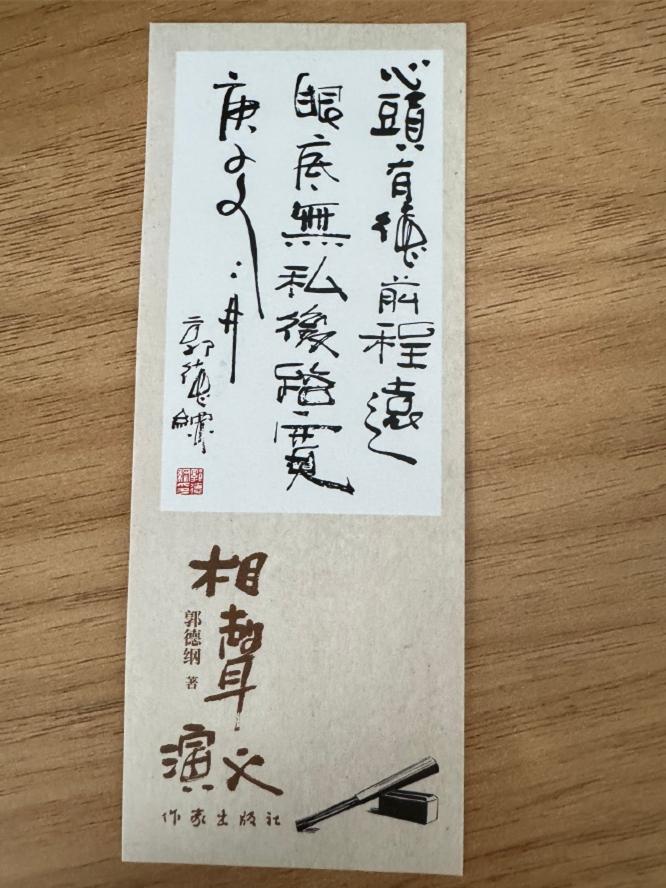 心頭有德前程遠
眼底無私後路寬
庚子文三井
郭德綱
相聲
演义
郭德纲 著
作家出版社